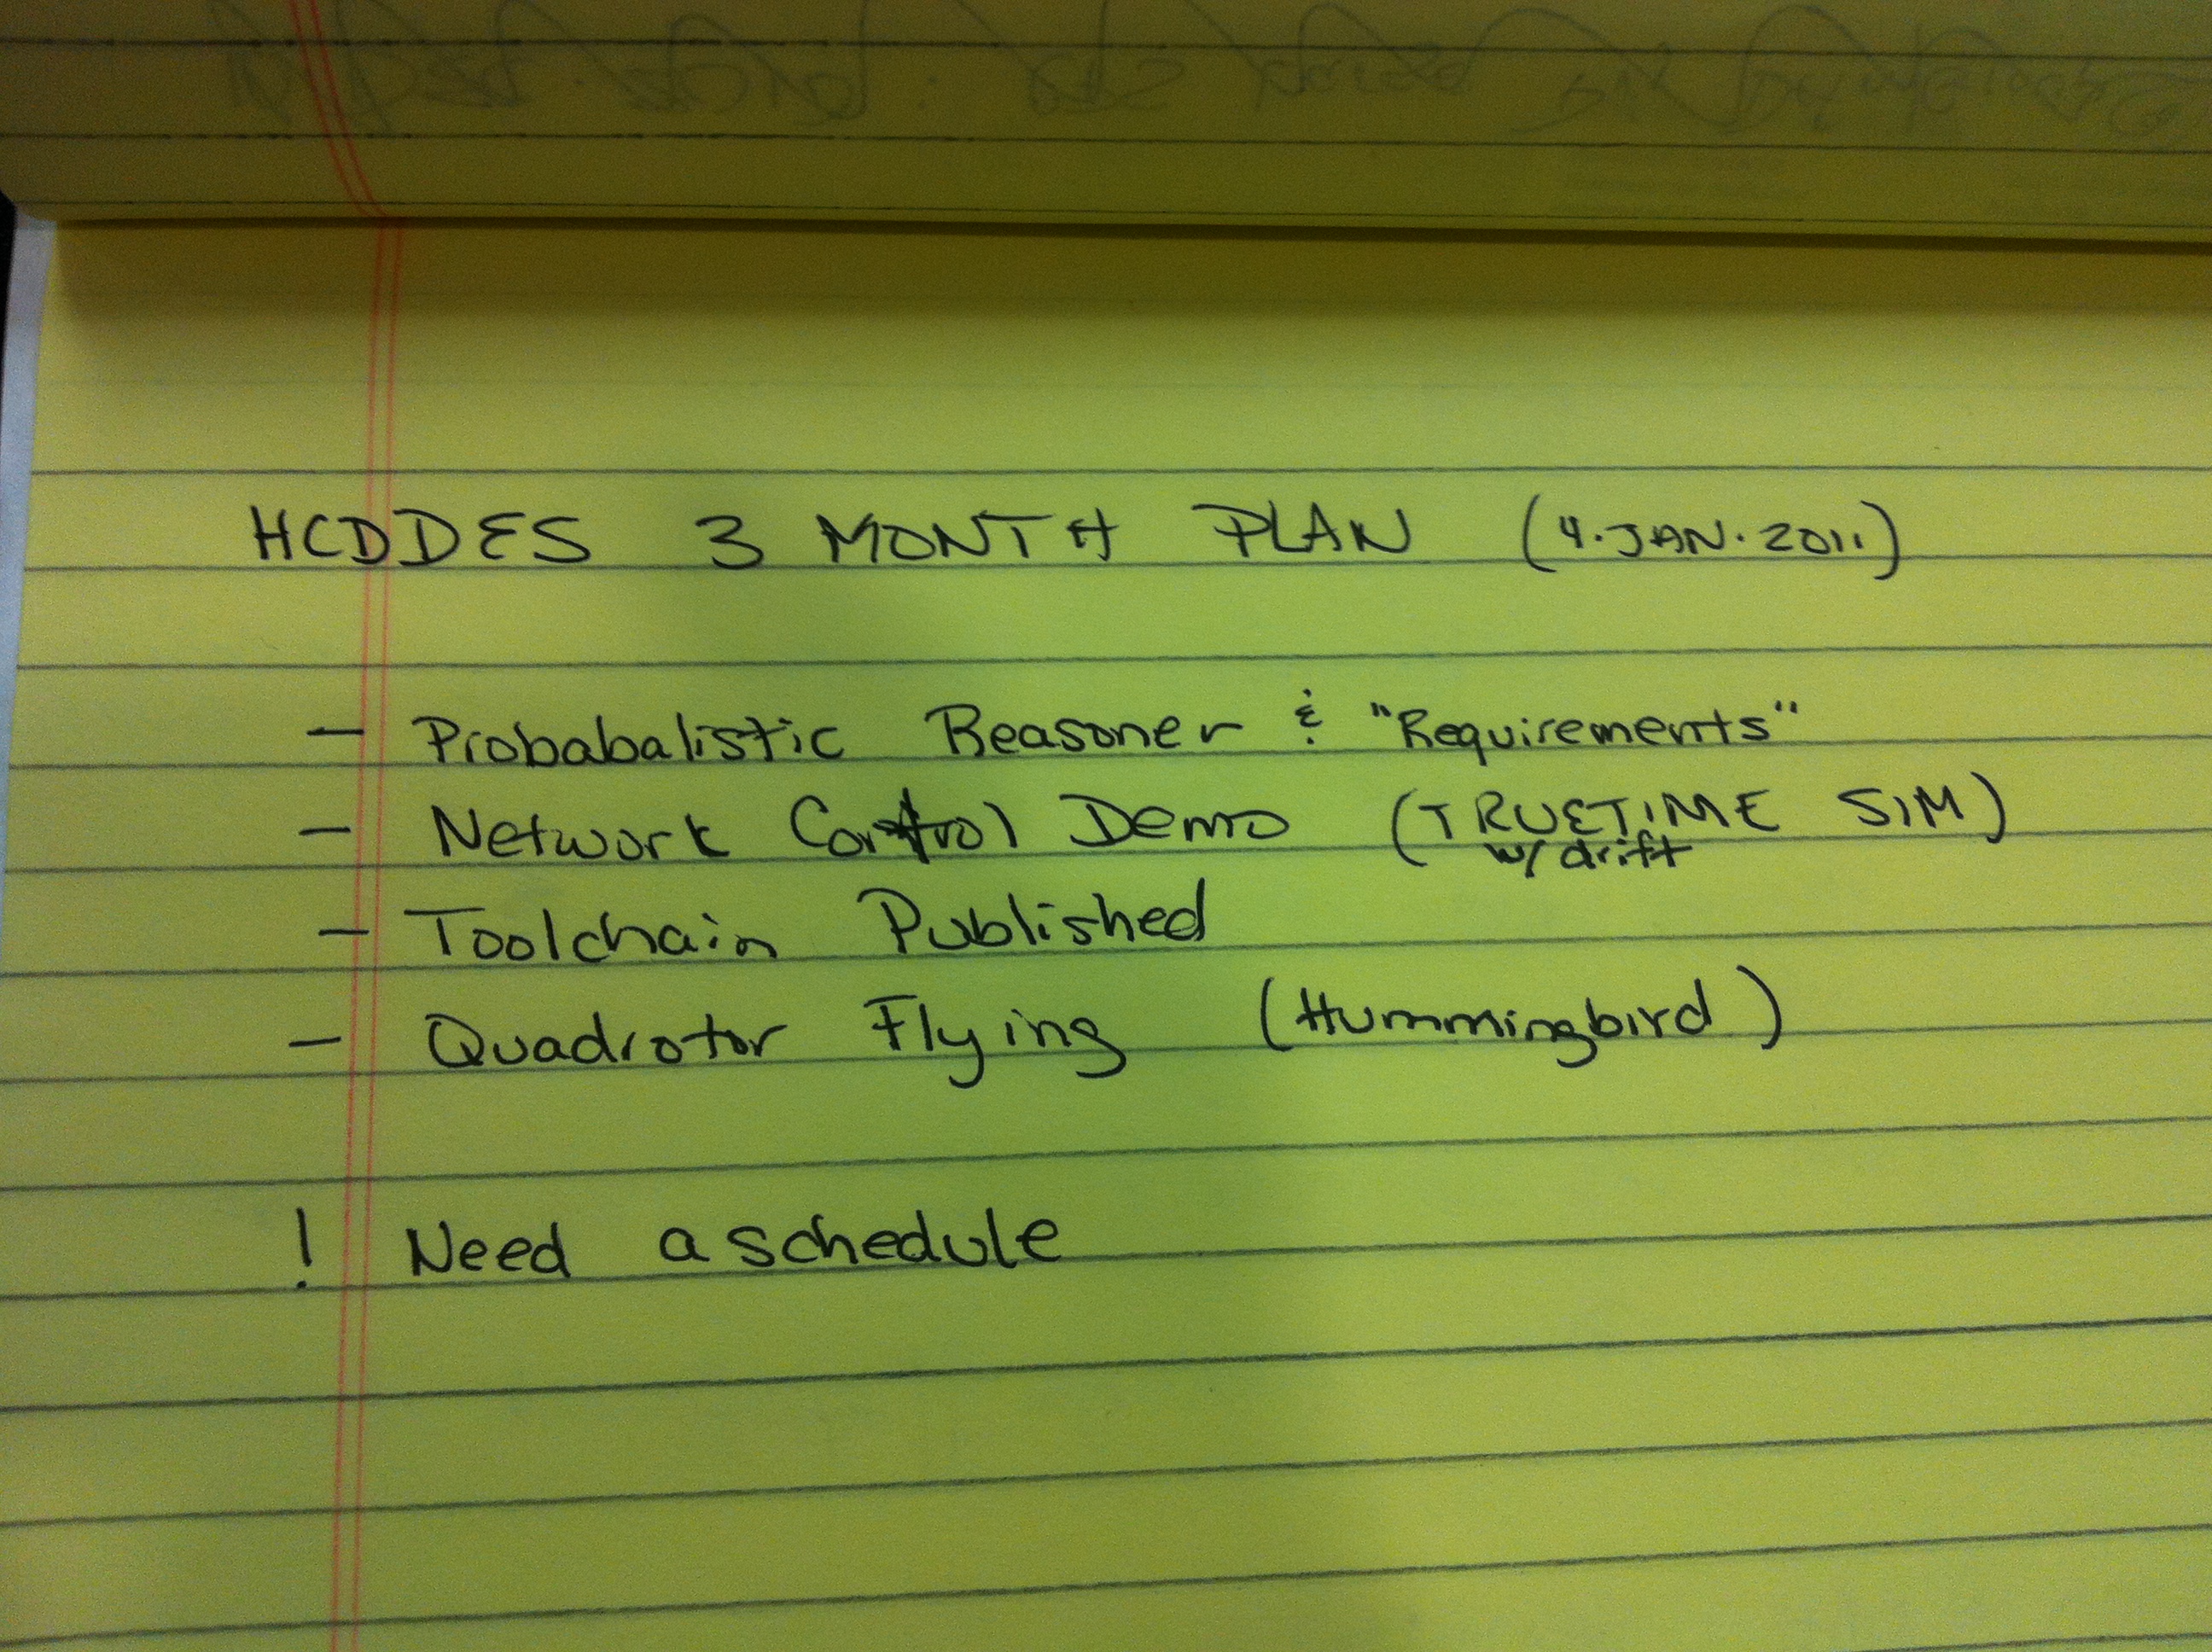 HCDDES 3 MONTH PLAN (4.JAN.2011)
- Probabalistic Reasoner & "Requirements"
- Network Control Demo (TRUETIME SIM)
w/drift
- Toolchain Published
- Quadrotor Flying (Hummingbird)
! Need a schedule